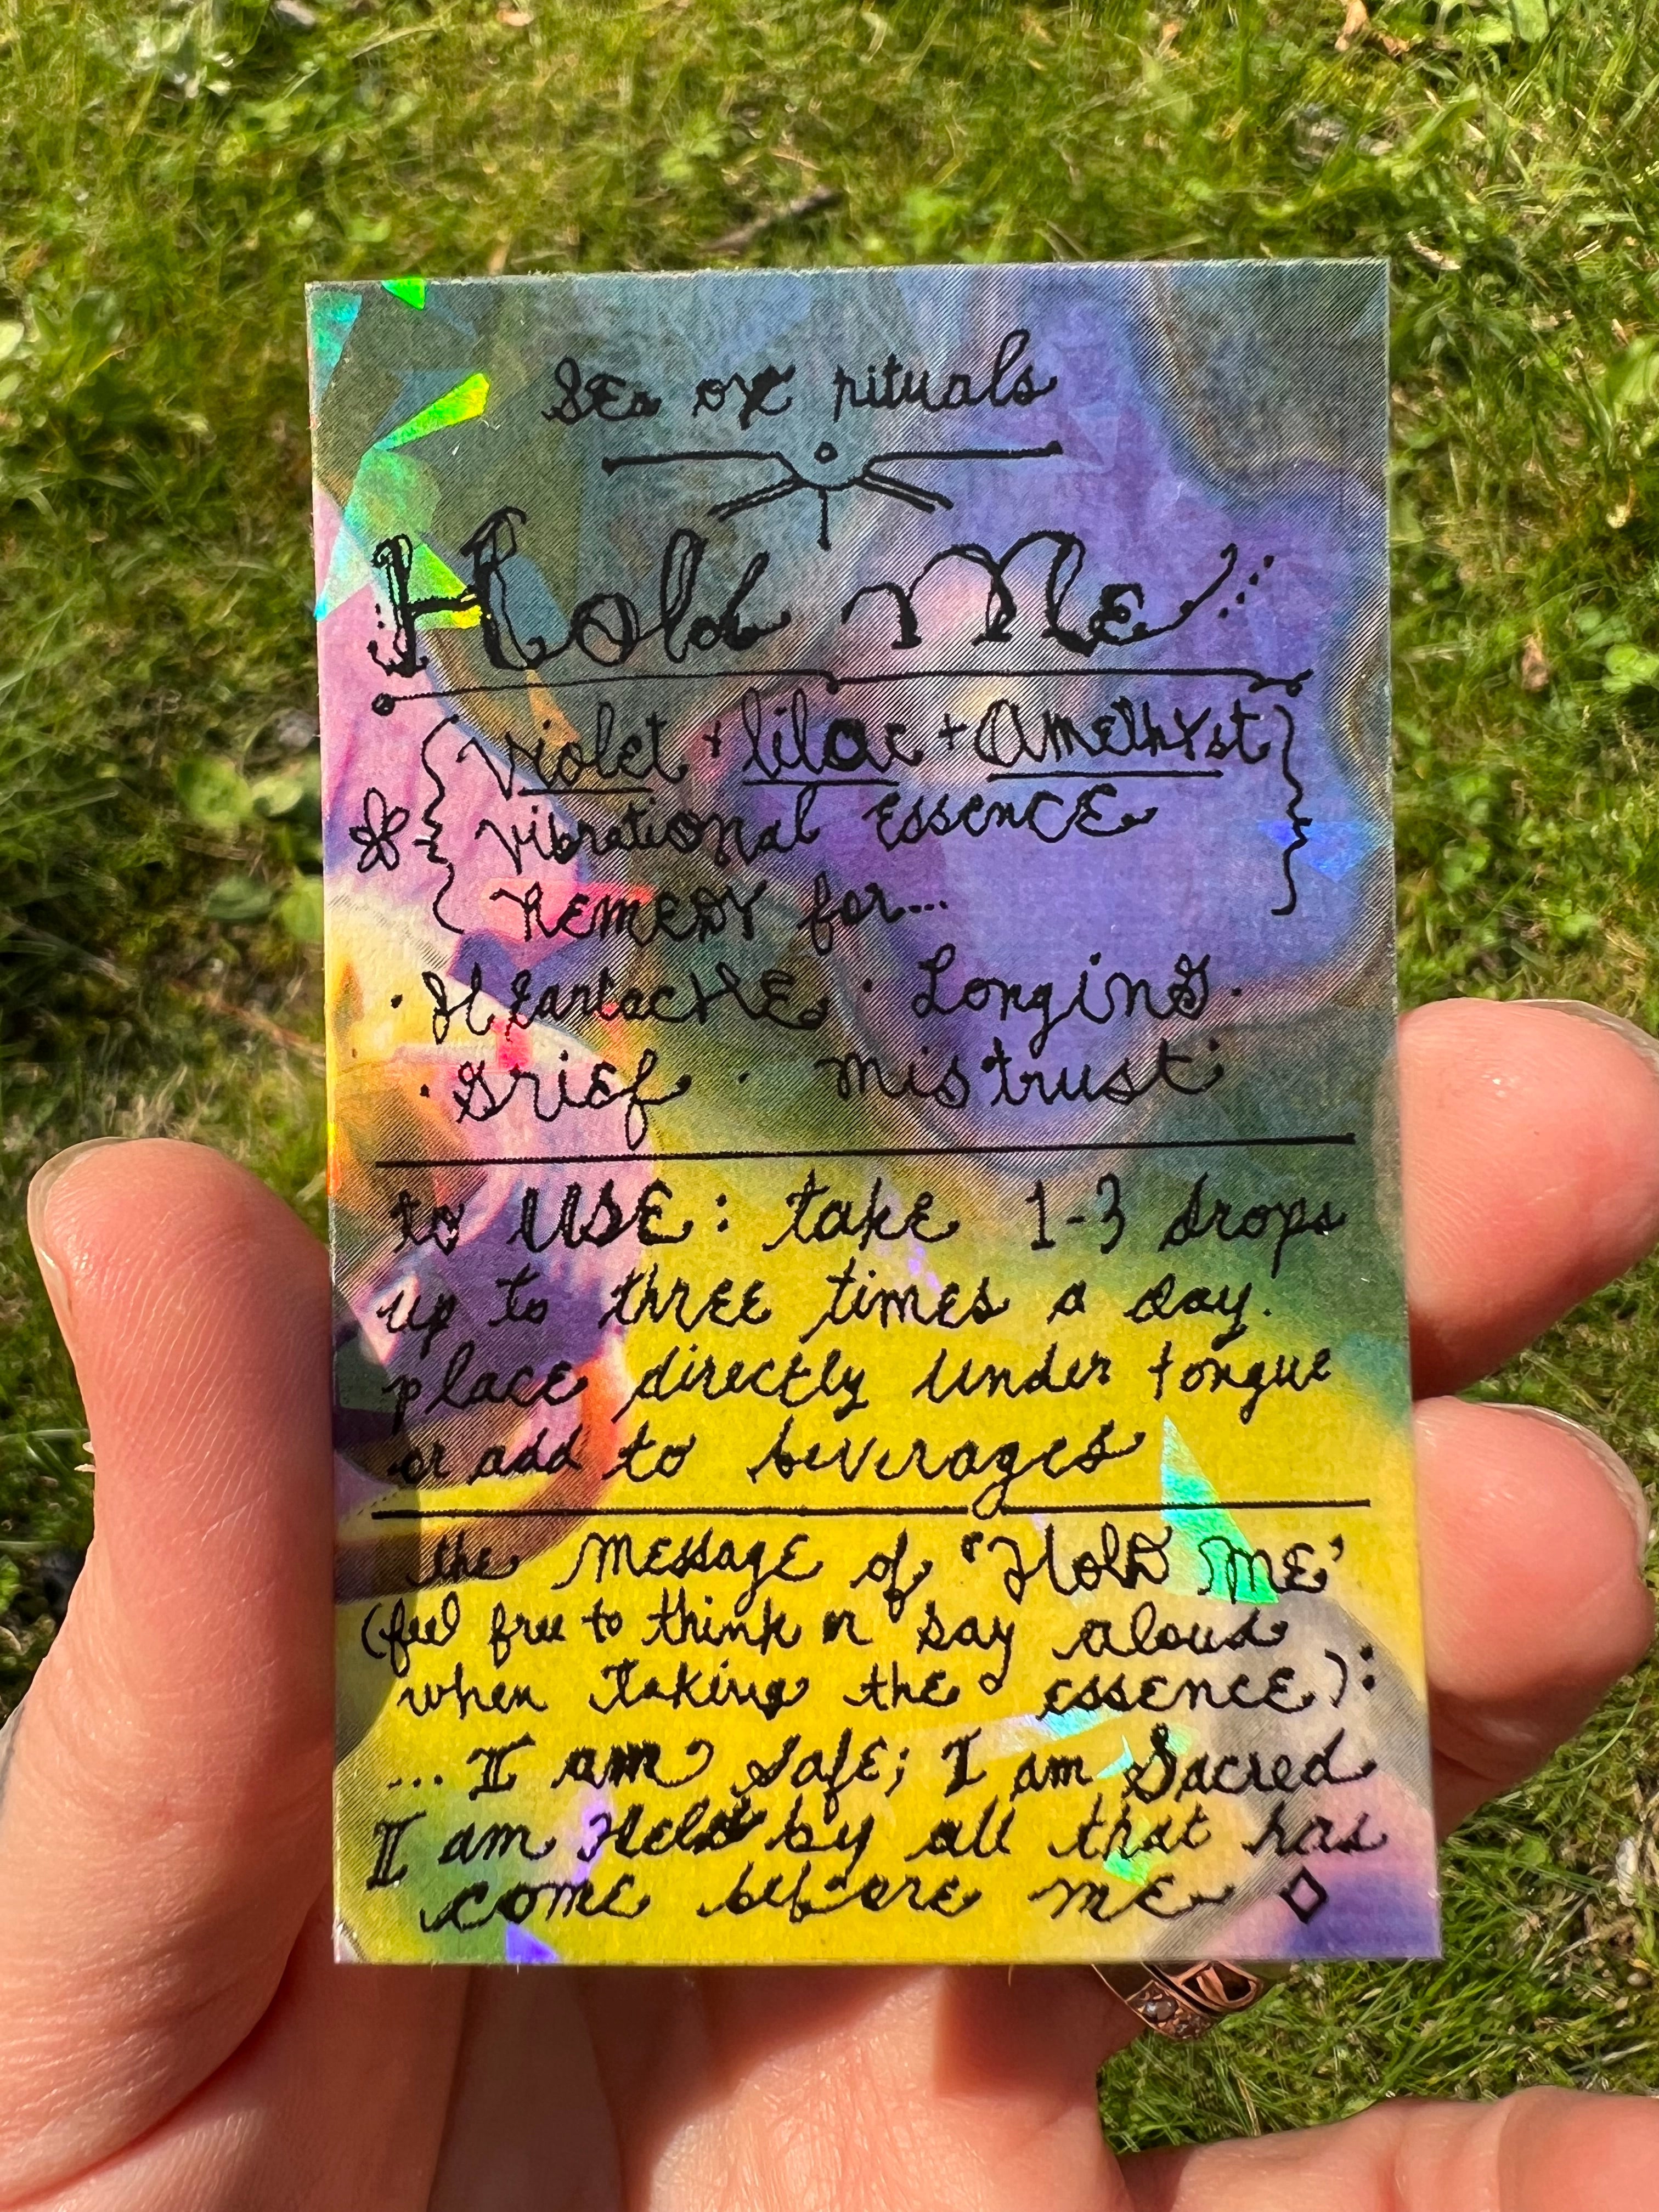 SEa ox rituals
Hold Me
Violet + lilac + AmeThYst
vibrational ESSENCE
REMEDY for...
· HEartacHE · LonginG ·
· Grief · mistrust ·
to USE: take 1-3 drops
up to thrEE times a day.
place directly under tongue
or add to beverages
the MessagE of "HolD ME"
(feel free to think or say aloud
when Taking the essence):
... I am Safe; I am Sacred
I am Held by all that has
come before me